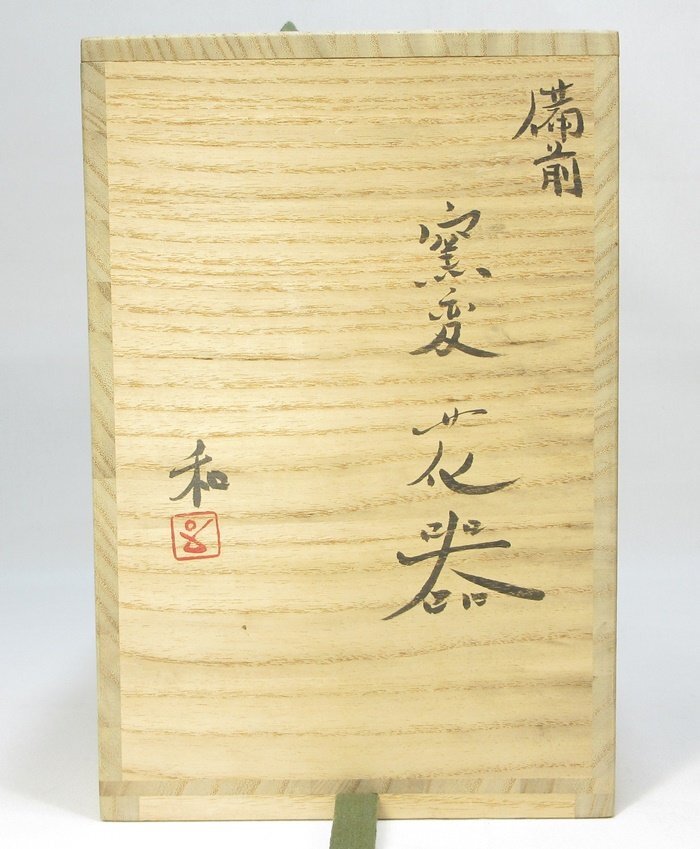 備前
窯変 花器
和